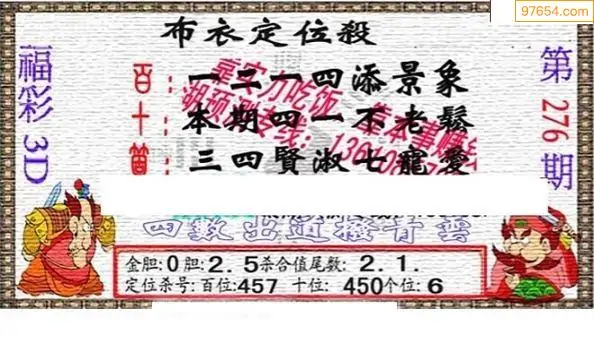 97654.com
布衣定位殺
福彩3D
第276期
百：一二一四添景象
十：本期四一不老鬆
個：三四賢淑七寵愛
靠实力吃饭 靠本事赚
四數出道撥青雲
金胆:0胆:2.5杀合值尾数:2.1.
定位杀号:百位:457 十位:450个位:6